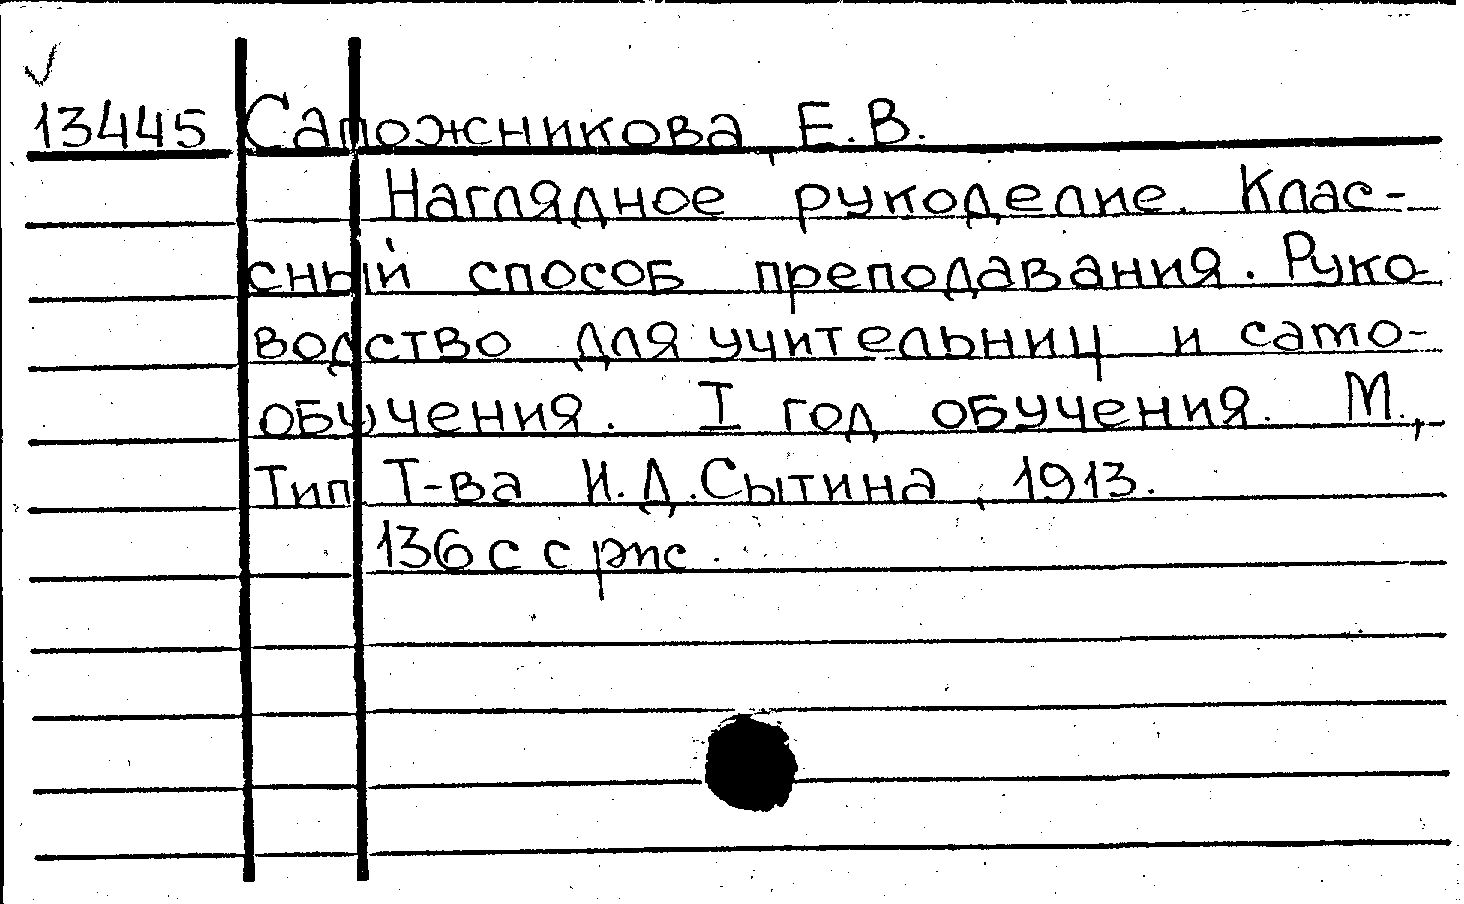 13445 Сапожникова, Е.В.
Наглядное рукоделие. Клас-
сный способ преподавания. Руко-
водство для учительниц и само-
обучения. I год обучения. М.,
Тип Т-ва И.Д.Сытина, 1913.
136 с с рис.